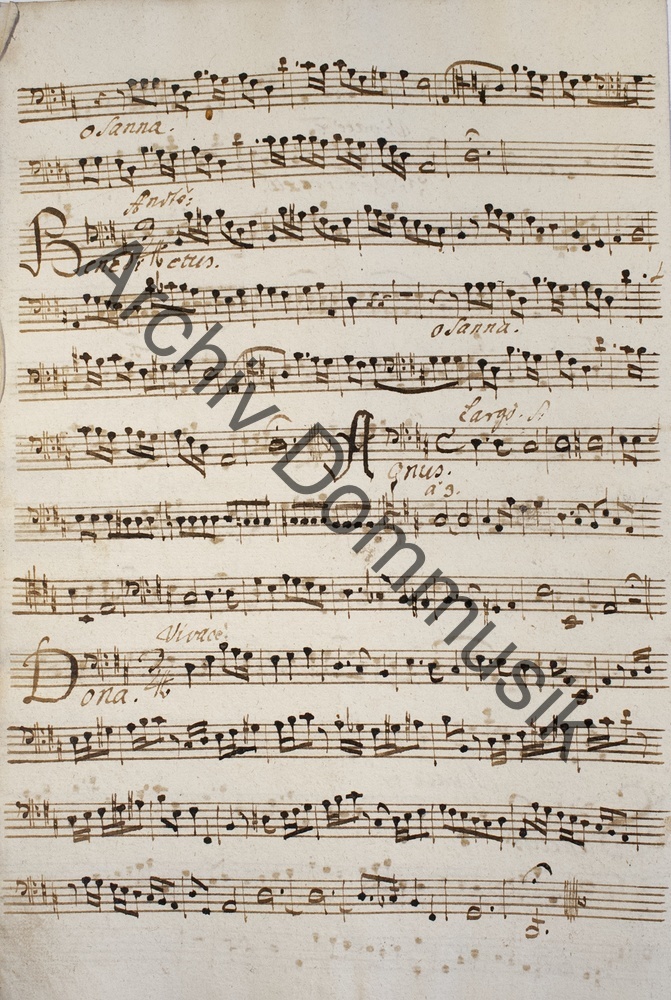 osanna.
Andte:
Benedictus.
osanna.
Largo.
Agnus.
a 3.
Vivace:
Dona.
Archiv Dommusik